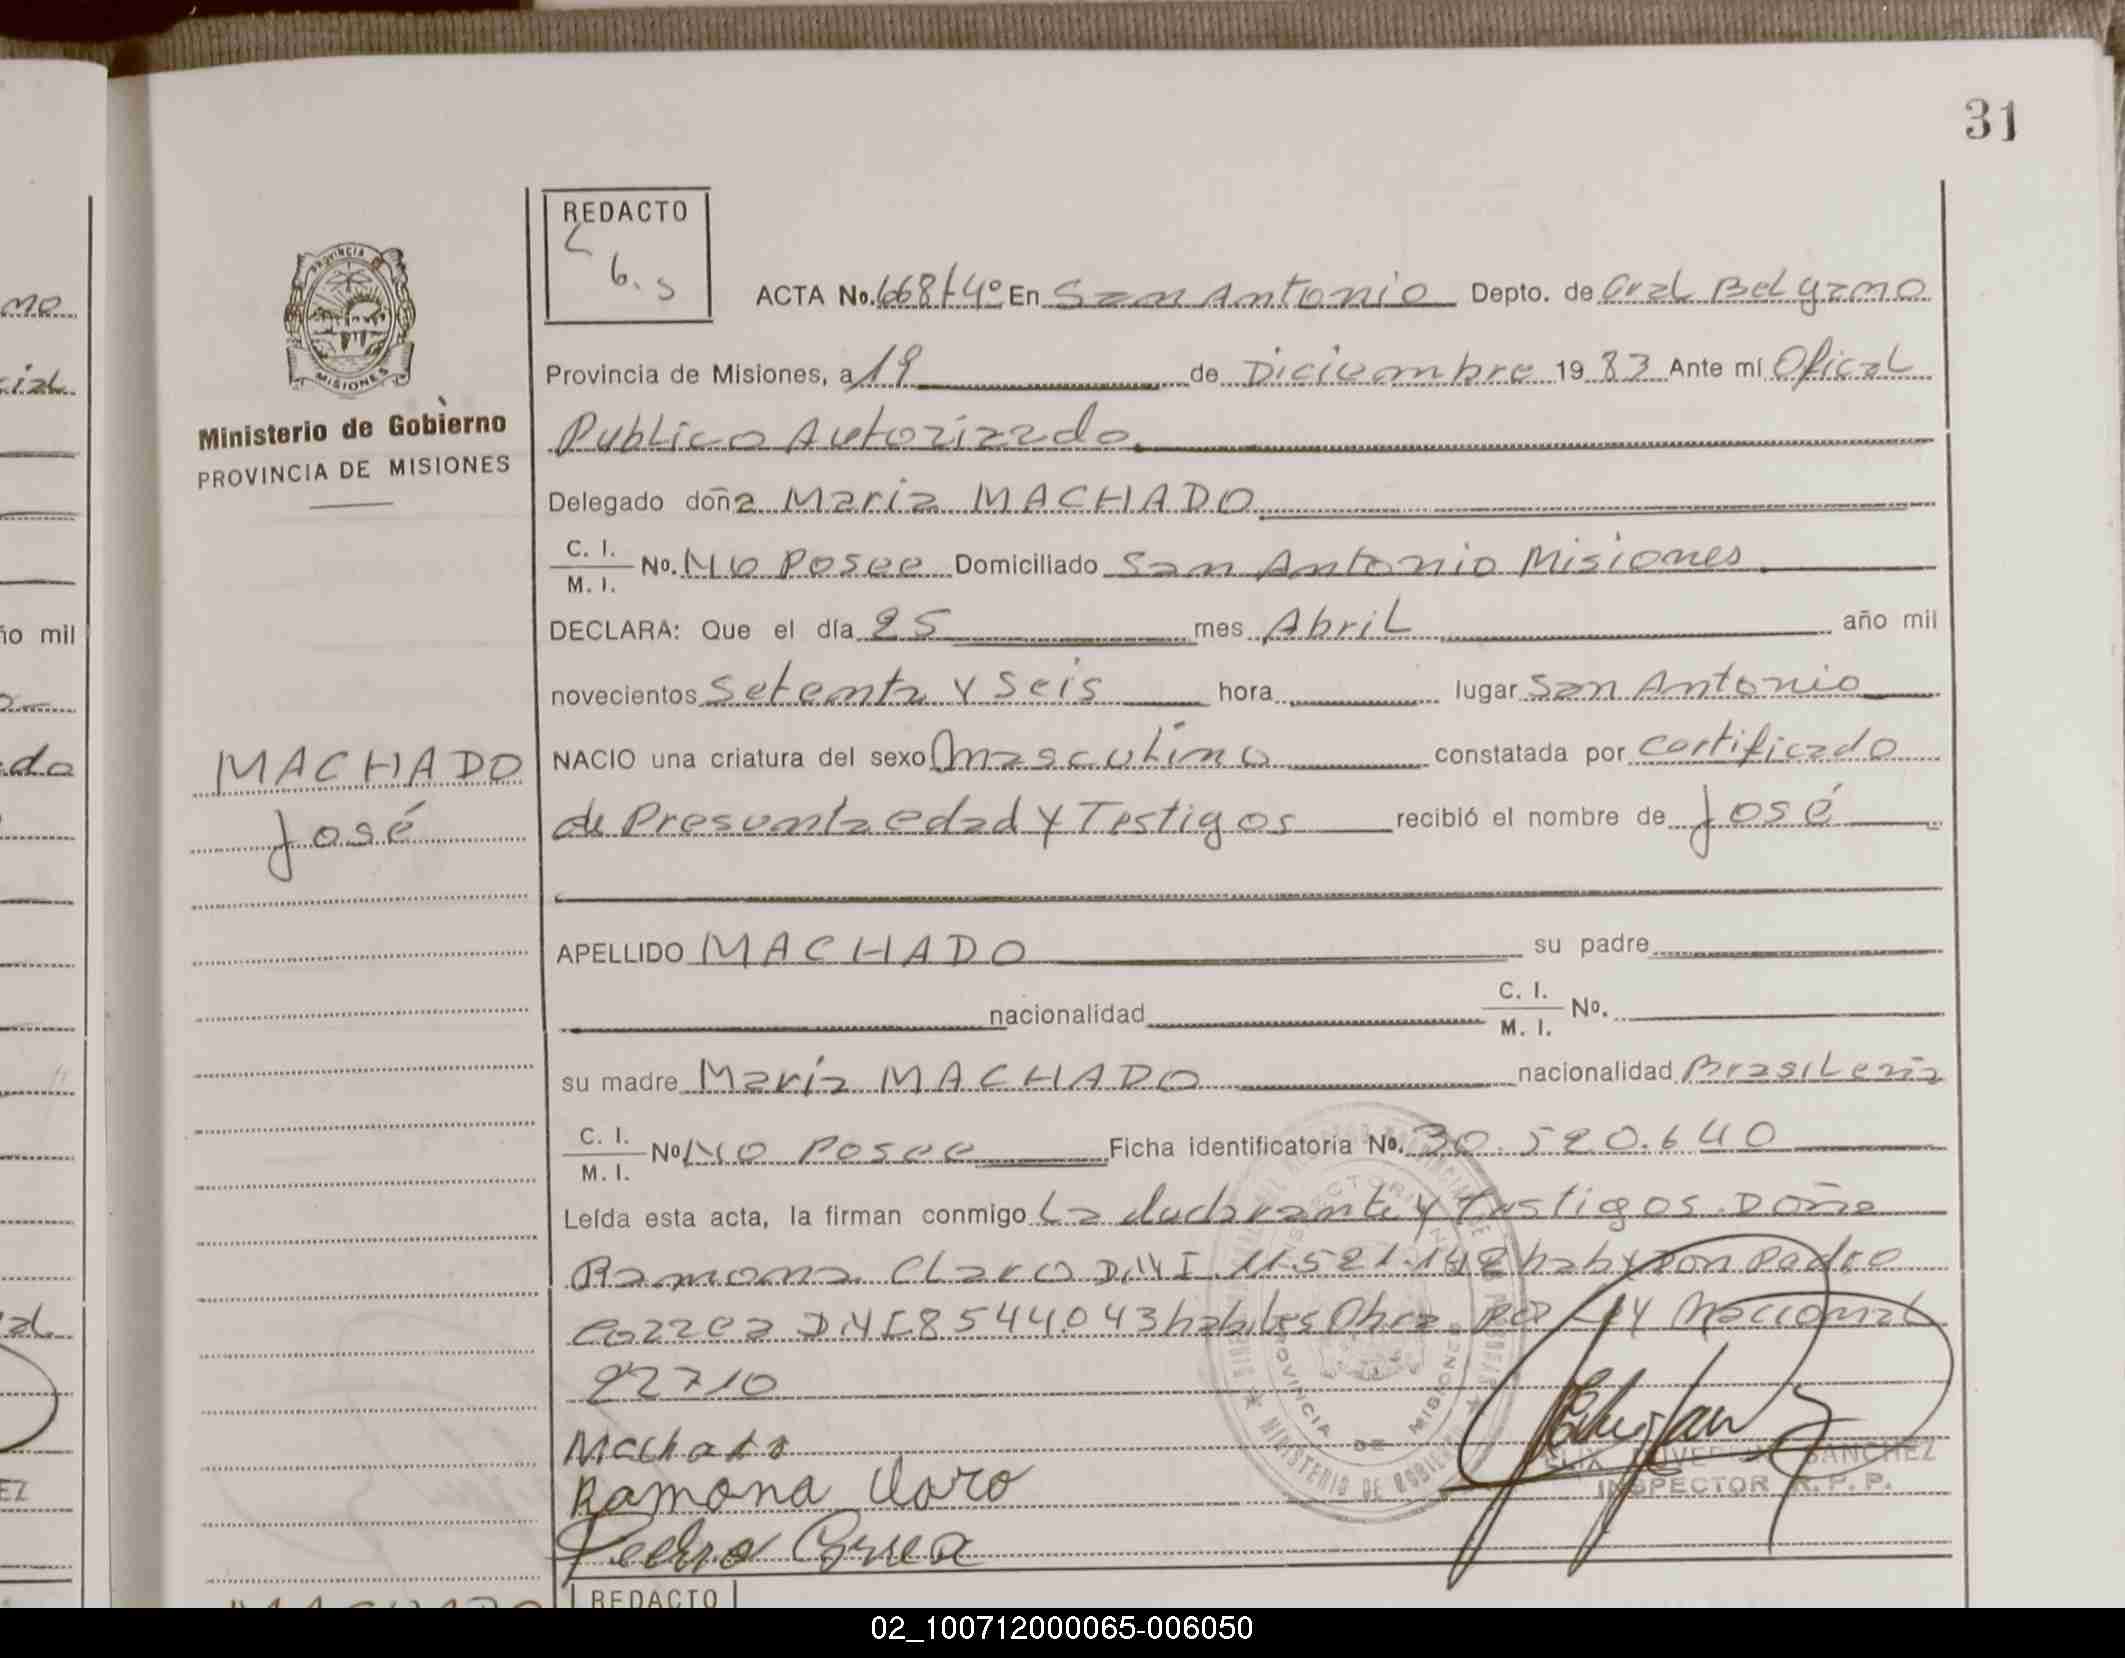 31
REDACTO
L
6. S
PROVINCIA DE
MISIONES
Ministerio de Gobierno
PROVINCIA DE MISIONES
ACTA No. 668/T4º En San Antonio Depto. de Gral Belgrano
Provincia de Misiones, a 19 de Diciembre 1983 Ante mí Oficial
Publico Autorizado
Delegado doña Maria MACHADO
C. I.
M. I. No. No Posee Domiciliado San Antonio Misiones
DECLARA: Que el día 25 mes Abril año mil
novecientos Setenta y Seis hora lugar San Antonio
NACIO una criatura del sexo Masculino constatada por certificado
de Presunta edad y Testigos recibió el nombre de José
MACHADO
José
APELLIDO MACHADO su padre
nacionalidad C. I.
M. I. No.
su madre María MACHADO nacionalidad Brasileña
C. I.
M. I. No No Posee Ficha identificatoria No. 30.520.640
Leída esta acta, la firman conmigo La declarante y testigos Doña
Ramona Claro D.N.I. 11.521.142 hab y Don Pedro
Correa DNI 8544043 habiles Obra por Ley Nacional
22710
Machado
Ramona Claro
Pedro Correa
PROVINCIA DE MISIONES
MINISTERIO DE GOBIERNO
SANCHEZ
INSPECTOR R. P. P.
REDACTO
mo
cial
ño mil
do
al
EZ
MACHADO
02_100712000065-006050